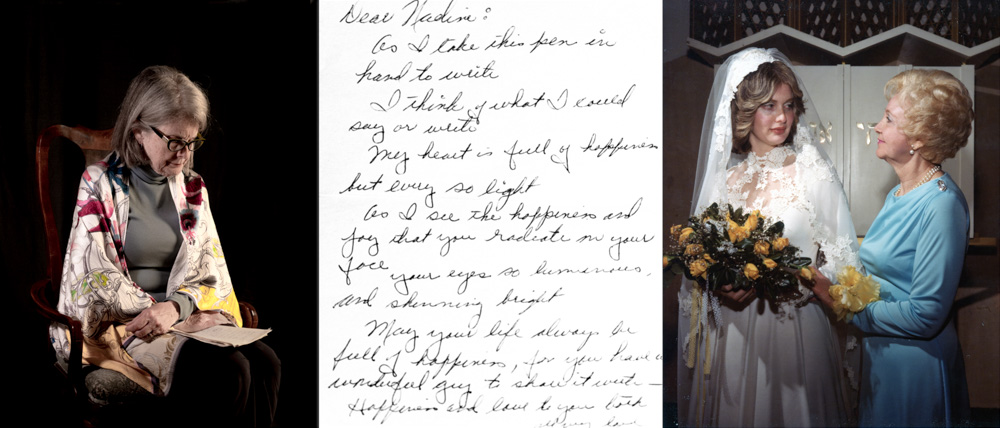 Dear Nadine:
As I take this pen in
hand to write
I think of what I could
say or write
My heart is full of happiness
but every so light
As I see the happiness and
joy that you radiate on your
face
your eyes so lumanous,
and shinning bright
May your life always be
full of happiness, for you have a
wonderful guy to share it with —
Happiness and love to you both
love